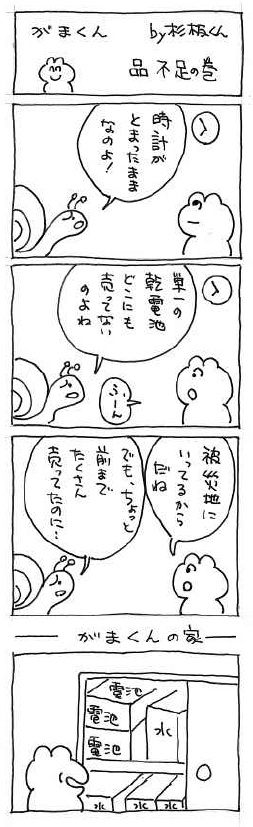 がまくん by杉板くん
品不足の巻
時計が
とまったまま
なのよ!
単一の
乾電池
どこにも
売ってない
のよね
ふーん
被災地に
いってるから
だね
でも、ちょっと
前まで
たくさん
売ってたのに…
がまくんの家
電池
電池
電池
水
水
水
水